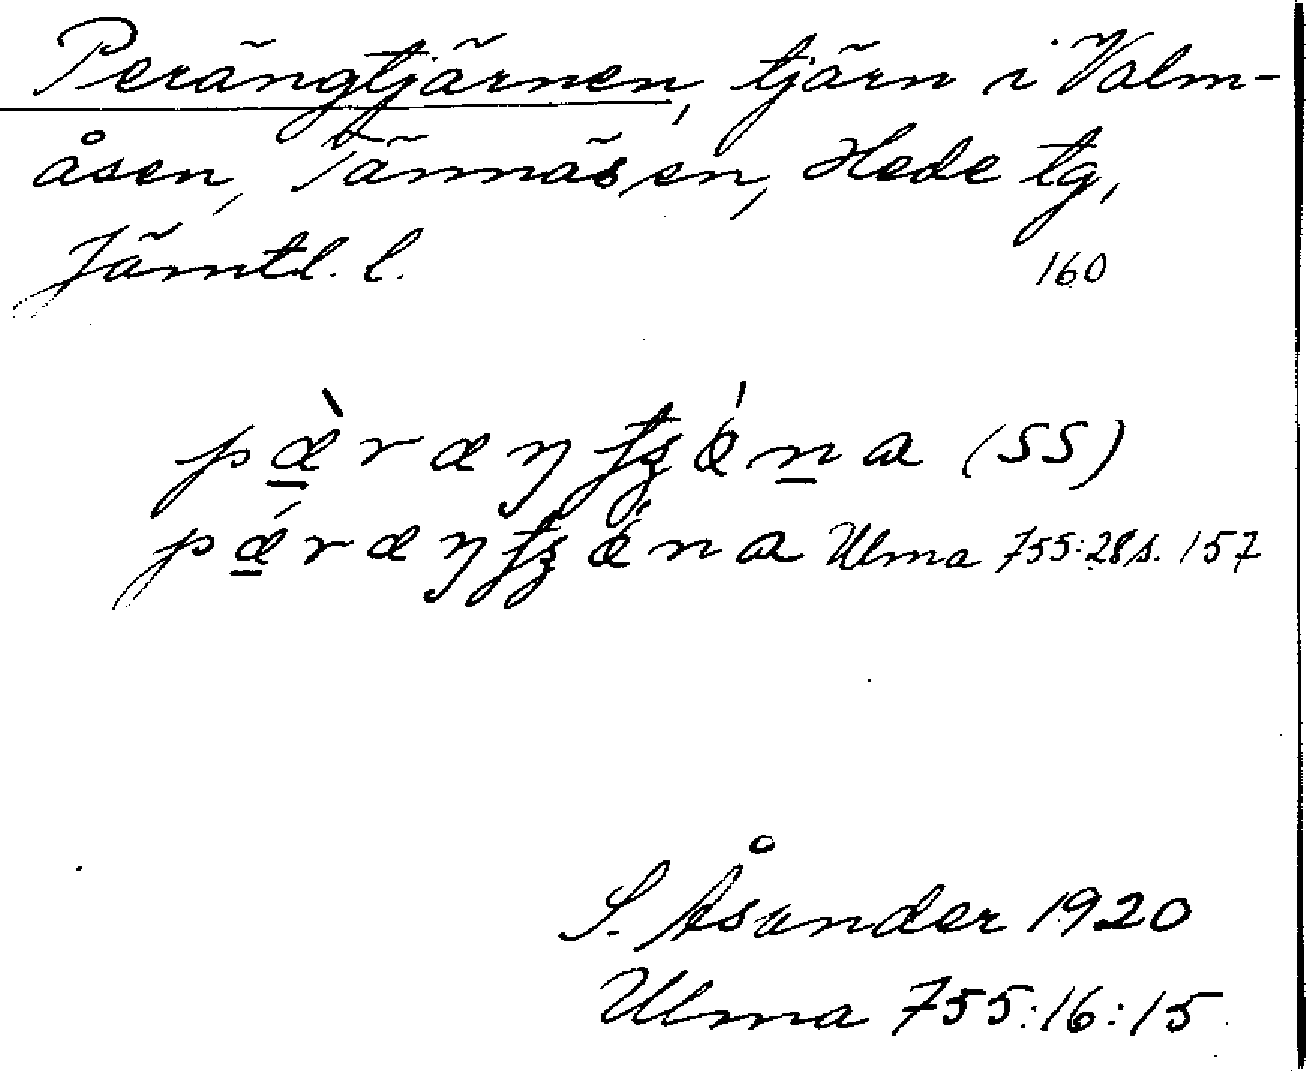 Perängtjärnen, tjärn i Valm-
åsen, Tännäs sn, Hede tg,
Jämtl. l. 160
pæ̠̀ræŋtʒǽn̠a (SS)
pǽ̠ræŋtʒǽna Ulma 755:28 s. 157
S. Åsander 1920
Ulma 755:16:15